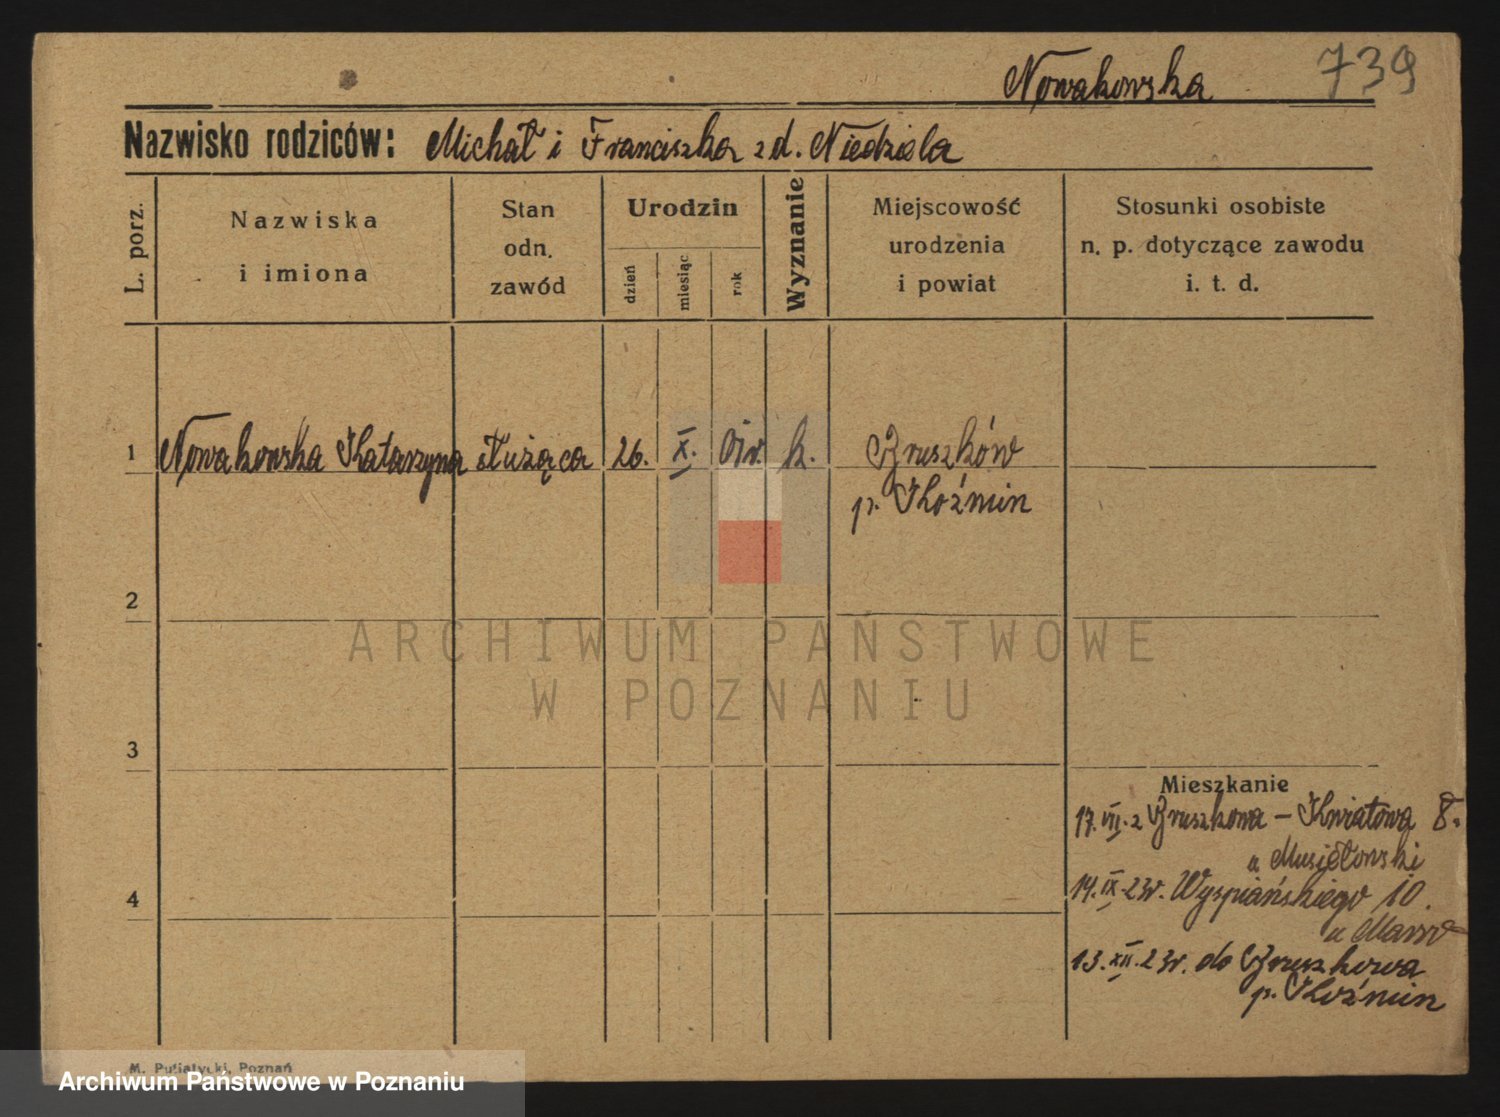 Nowakowska 739
Nazwisko rodziców: Michał i Franciszka z d. Niedziela
L. porz.
Nazwiska
i imiona
Stan
odn.
zawód
Urodzin
dzień
miesiąc
rok
Wyznanie
Miejscowość
urodzenia
i powiat
Stosunki osobiste
n. p. dotyczące zawodu
i. t. d.
1 Nowakowska Katarzyna służąca 26. X. k. Gruszków
p. Koźmin
2
3
4
Mieszkanie
17. VII. z Gruszkowa – Kwiatowa 8.
u Musiełowski
14. IX. 23r. Wyspiańskiego 10.
u
13. XII. 23r. do Gruszkowa
p. Koźmin
ARCHIWUM PAŃSTWOWE
W POZNANIU
M. Putiatycki, Poznań
Archiwum Państwowe w Poznaniu